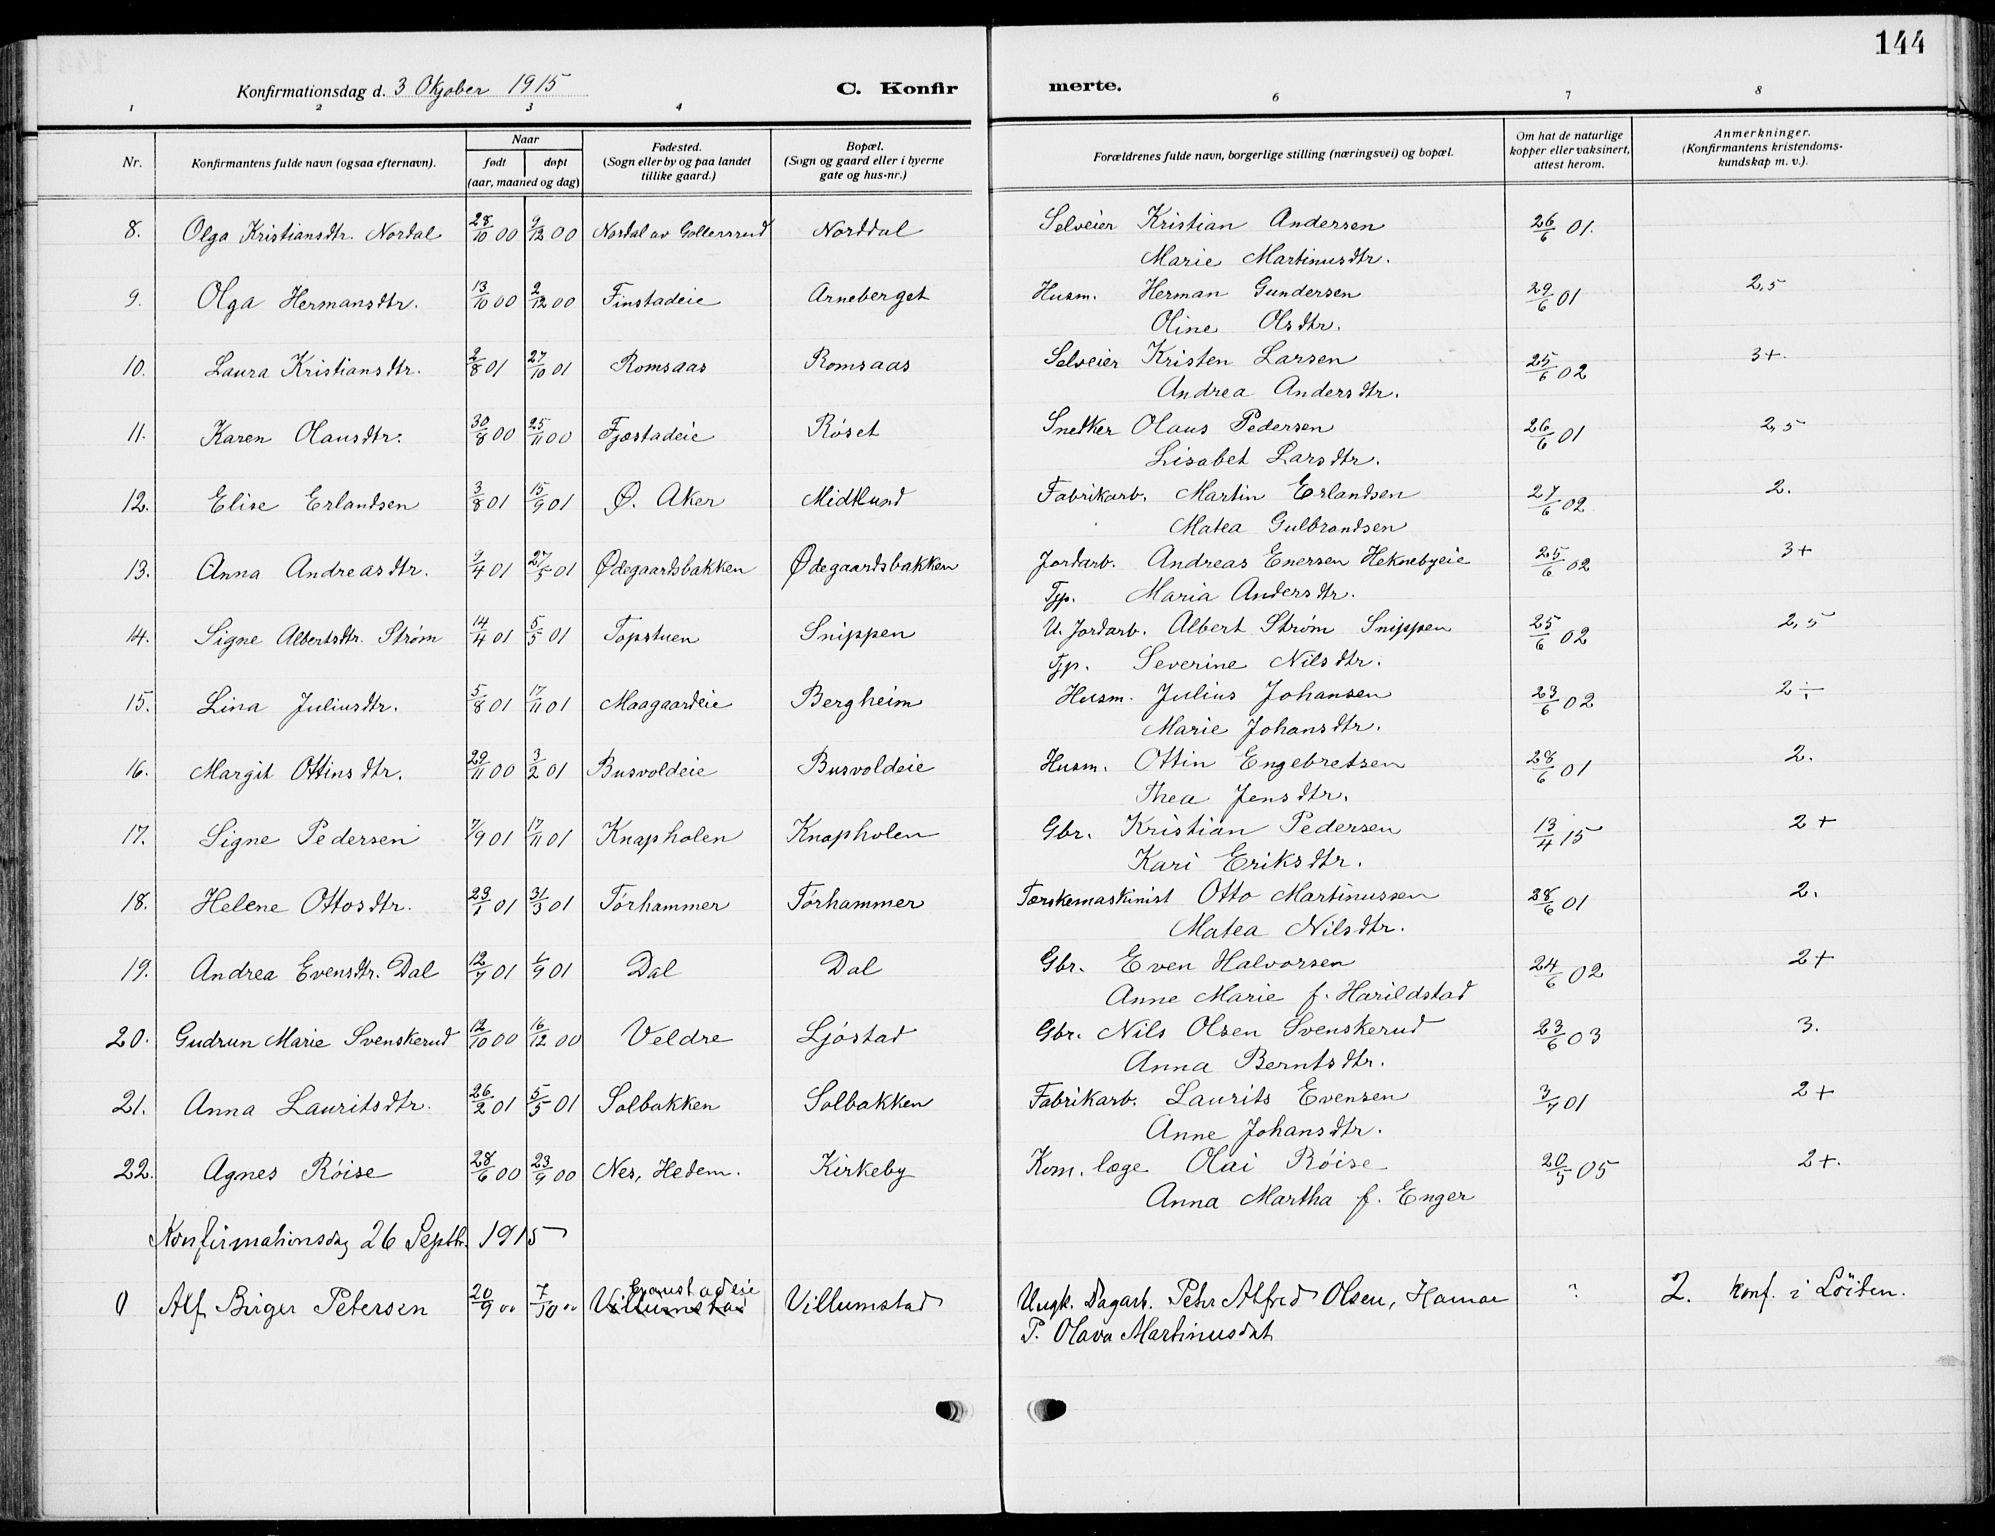 144
Konfirmationsdag d. 3 Oktober 1915 C. Konfirmerte.
1 2 3 4 6 7 8
Nr. Konfirmantens fulde navn (ogsaa efternavn). Naar født døpt (aar, maaned og dag) Fødested. (Sogn eller by og paa landet tillike gaard.) Bopæl. (Sogn og gaard eller i byerne gate og hus-nr.) Forældrenes fulde navn, borgerlige stilling (næringsvei) og bopæl. Om hat de naturlige kopper eller vaksinert, attest herom. Anmerkninger. (Konfirmantens kristendomskundskap m. v.).
8. Olga Kristiansdtr. Nordal 28/10 00 9/12 00 Nordal av Gollersrud Norddal Selveier Kristian Andersen 26/6 01.
Marie Martinusdtr.
9. Olga Hermansdtr. 13/10 00 2/12 00 Finstadeie Arneberget Husm. Herman Gundersen 29/6 01 2,5
Oline Olsdtr.
10. Laura Kristiansdtr. 2/8 01 27/10 01 Romsaas Romsaas Selveier Kristen Larsen 25/6 02 3+.
Andrea Andersdtr.
11. Karen Olausdtr. 30/8 00 25/11 00 Fjæstadeie Røset Snekker Olaus Pedersen 26/6 01 2,5
Lisabet Larsdtr.
12. Elise Erlandsen 3/8 01 15/9 01 Ø. Aker Midtlund Fabrikarb. Martin Erlandsen 27/6 02 2.
Matea Gulbrandsen
13. Anna Andreasdtr. 9/4 01 27/5 01 Ødegaardsbakken Ødegaardsbakken Jordarb. Andreas Enersen Heknebyeie 25/6 02 3+
Tjp. Maria Andersdtr.
14. Signe Albertsdtr. Strøm 14/4 01 5/5 01 Topstuen Snippen U. Jordarb. Albert Strøm Snippen 25/6 02 2,5
Tjp. Severine Nilsdtr.
15. Lina Juliusdtr. 5/8 01 17/11 01 Maagaardeie Bergheim Husm. Julius Johansen 23/6 02 2÷
Marie Johansdtr.
16. Margit Ottinsdtr. 29/11 00 3/2 01 Busvoldeie Busvoldeie Husm. Ottin Engebretsen 28/6 01 2.
Thea Jensdtr.
17. Signe Pedersen 7/9 01 17/11 01 Knapholen Knapholen Gbr. Kristian Pedersen 13/4 15 2+
Kari Eriksdtr.
18. Helene Ottosdtr. 23/1 01 31/3 01 Tørhammer Tørhammer Tærskemaskinist Otto Martinussen 28/6 01 2.
Matea Nilsdtr.
19. Andrea Evensdtr. Dal 12/7 01 1/9 01 Dal Dal Gbr. Even Halvorsen 24/6 02 2+
Anne Marie f. Harildstad
20. Gudrun Marie Svenskerud 12/10 00 16/12 00 Veldre Ljøstad Gbr. Nils Olsen Svenskerud 23/6 03 3.
Anna Berntsdtr.
21. Anna Lauritsdtr. 26/2 01 5/5 01 Solbakken Solbakken Fabrikarb. Laurits Evensen 3/7 01 2+
Anne Johansdtr.
22. Agnes Røise 28/6 00 23/9 00 Nes, Hedem. Kirkeby Kom. læge Olai Røise 20/5 05 2+.
Anna Martha f. Enger
Konfirmationsdag 26 Septbr. 1915
0 Alf Birger Petersen 20/9 00 7/10 00 Villumstad Villumstad Ungk. Dagarb. Petr Alfred Olsen, Hamar ? 2. Konf. i Löiten.
P. Olava Martinusdat